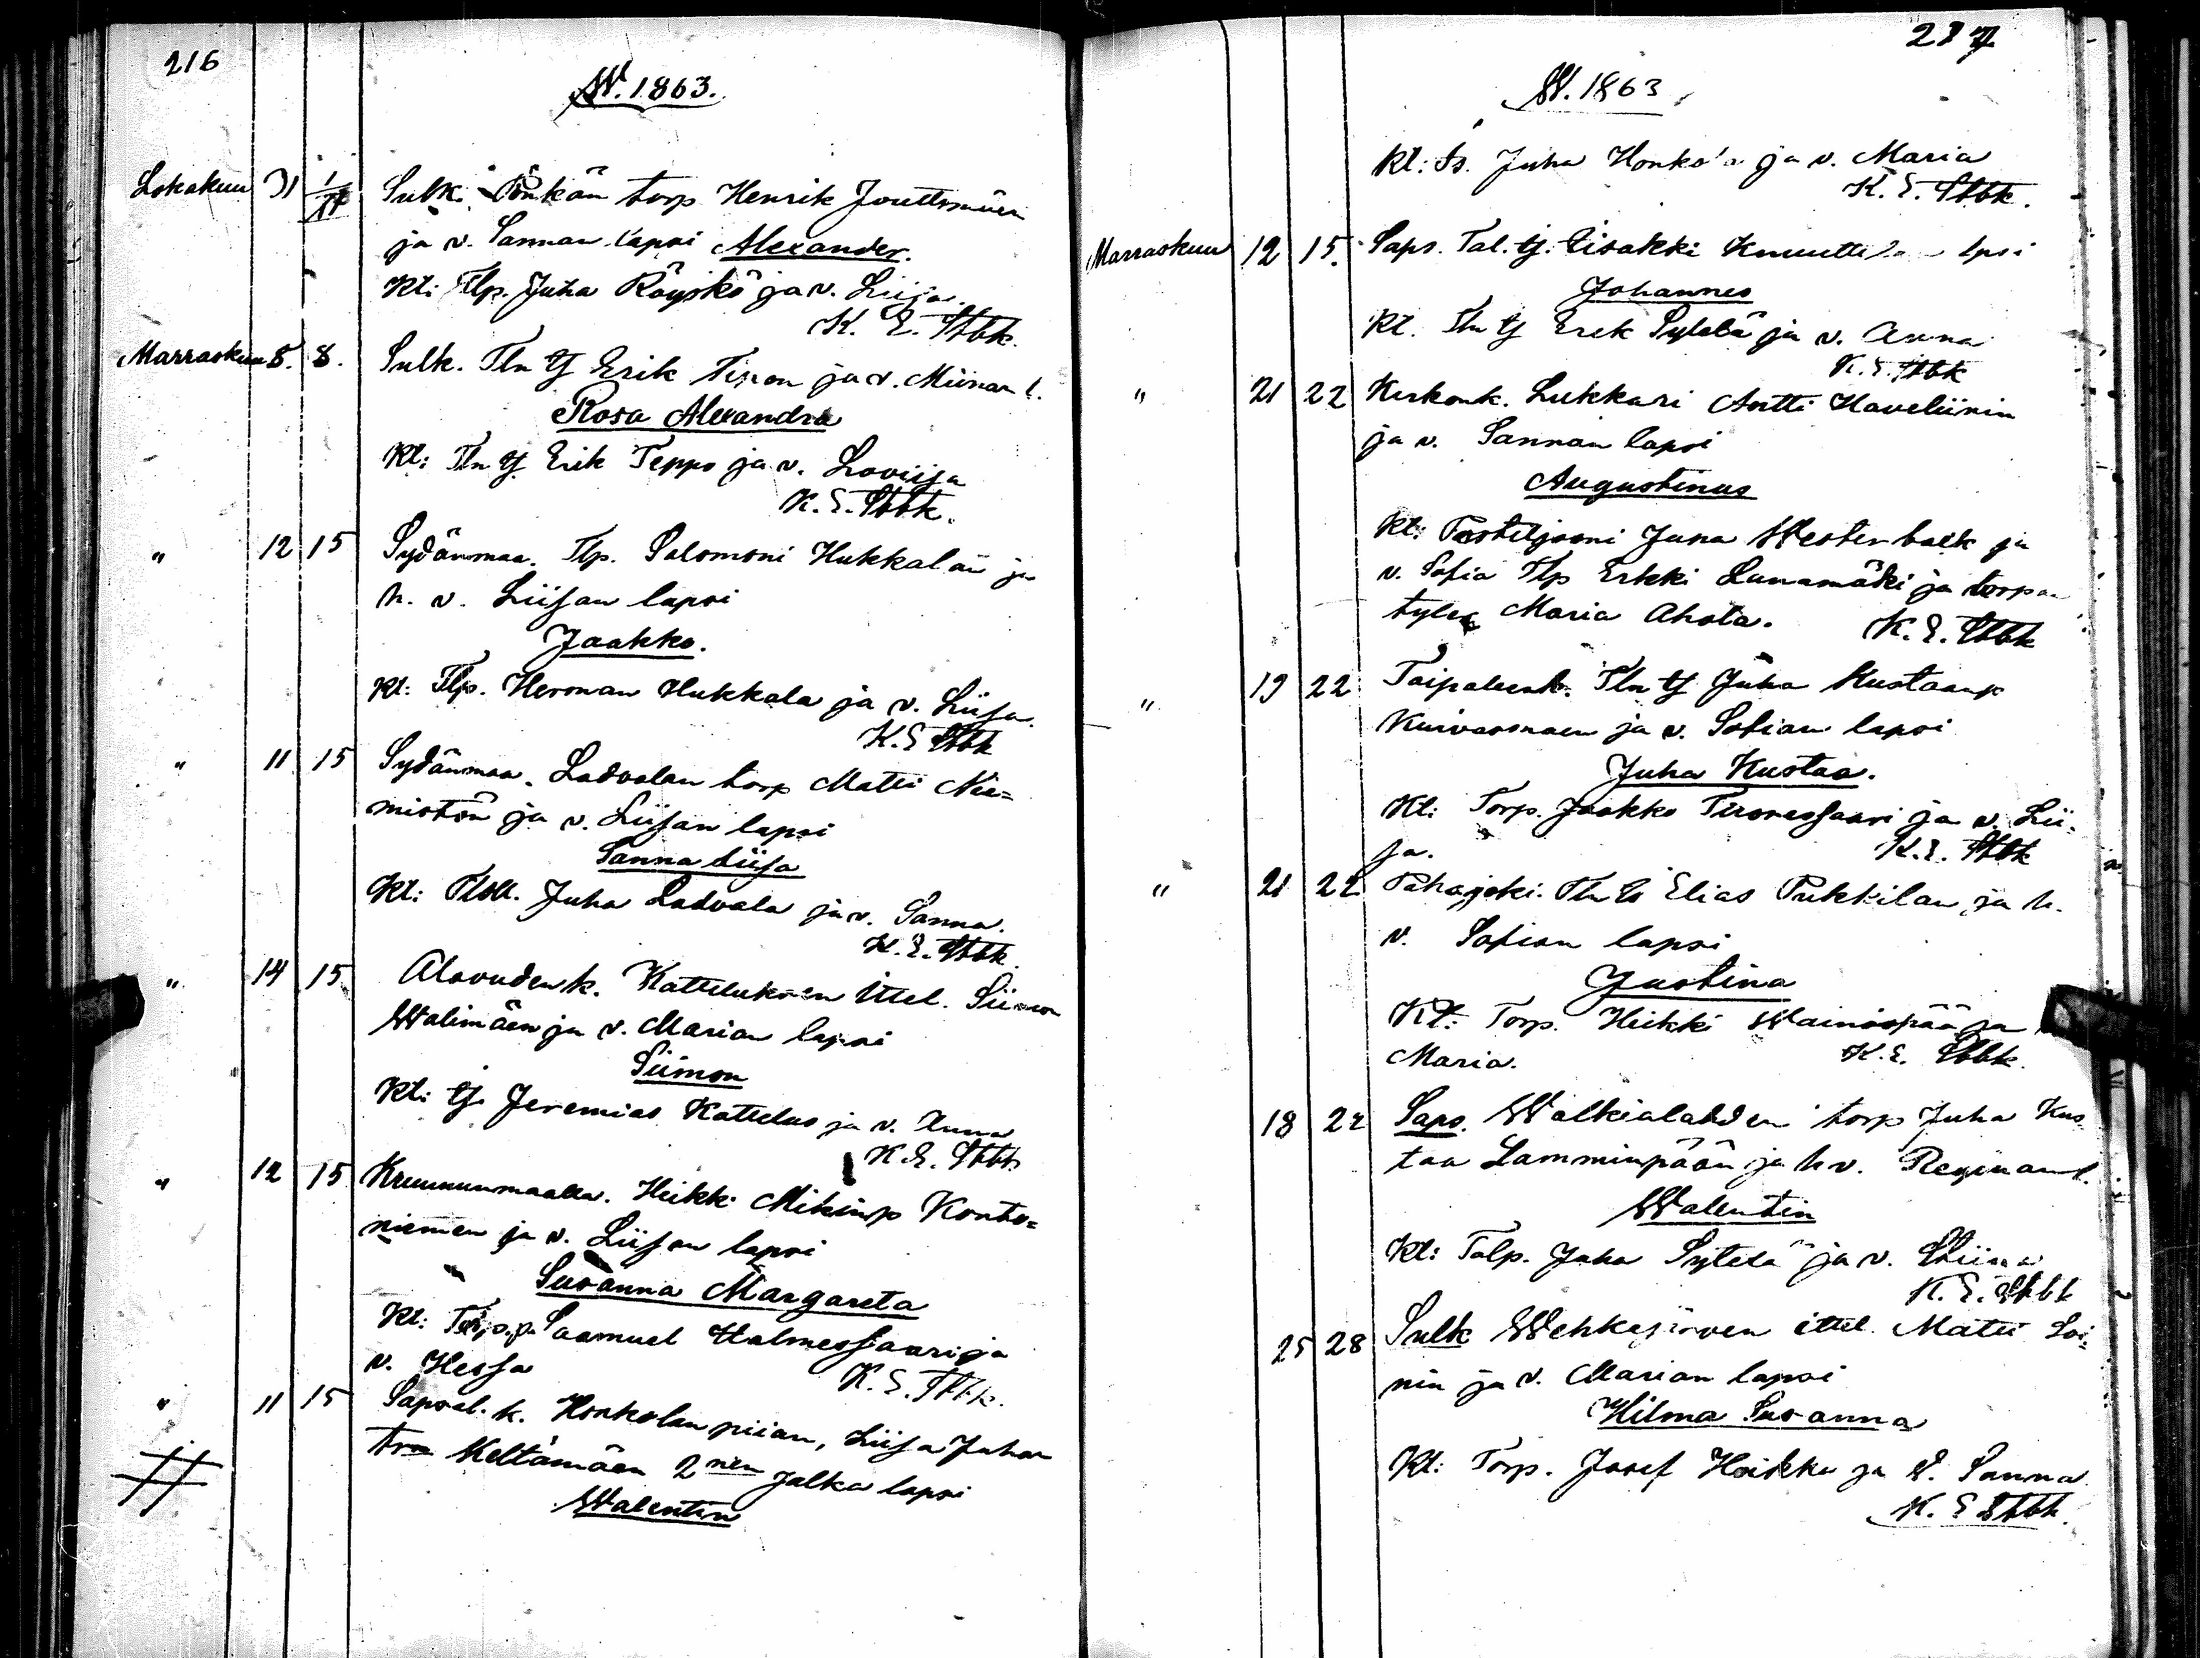 216
W. 1863.
Lokakuu 31 1/11 Sulk. Pönkän torp Henrik Jouttimäen
ja v. Sannan lapsi Alexander.
Kt: Tlp. Juha Röyskö ja v. Liisa.
K. E. Stbk.
Marraskuu 5. 8. Sulk. Tln tj Erik Tepon ja v. Miinan l.
Rosa Alexandra
Kt: Tln tj. Erik Teppo ja v. Loviisa
K. E. Stbk.
" 12 15 Sydänmaa. Tlp. Salomoni Hukkalan ja
h. v. Liisan lapsi
Jaakko.
Kt: Tlp. Herman Hukkala ja v. Liisa.
K. E Stbk
" 11 15 Sydänmaa. Ladvalan torp Matti Nie=
mistön ja v. Liisan lapsi
Sanna Liisa
Kt: Tloll. Juha Ladvala ja v. Sanna.
K. E. Stbk.
" 14 15 Alavuden k. Katteluksen ittel. Siimon
Walimäen ja v. Marian lapsi
Siimon
Kt: tj Jeremias Kattelus ja v. Anna
K. E. Stbk
" 12 15 Kruununmaalla. Heikki Mikinp Konto=
niemen ja v. Liisan lapsi
Susanna Margareta
Kt: Torp.p. Saamuel Halmessaari ja
v. Hessa
K. E. Stbk.
" 11 15 Sapsal. k. Honkolan piian, Liisa Juhan
tr. Keltamäen 2nen jalka lapsi
Walentin
217
W. 1863
Kt: ts. Juha Honkola ja v. Maria
K. E. Stbk.
Marraskuu 12 15. Saps. Tal. tj. Eisakki Knuuttilan lpsi
Johannes
Kt. Tln tj Erik Sytelä ja v. Anna
K. E. Stbk
" 21 22 Kirkonk. Lukkari Antti Haveliinin
ja v. Sannan lapsi
Augustinus
Kt: Postiljooni Juha Westerback ja
v. Sofia Tlp Erkki Lunamäki ja torpan
tyler Maria Ahola.
K. E. Stbk
" 19 22 Taipaleenk. Tln tj Juha Kustaanp
Kuivasmaen ja v. Sofian lapsi
Juha Kustaa.
Kt: Torp. Jaakko Teronessaari ja v. Lii=
sa.
K. E. Stbk
" 21 22 Pahajoki. Tln ts Elias Pukkilan ja h.
v. Sofian lapsi
Justina
Kt: Torp. Heikki Wainiopää ja
Maria.
K. E. Stbk.
18 22 Saps. Walkialahden torp Juha Kus
taa Lamminpään ja h v. Reginan l.
Walentin
Kt: Talp. Juha Sytelä ja v. Stiina
K. E. Stbk
25 28 Sulk Wehkajärven ittel. Matti Loi=
nin ja v. Marian lapsi
Hilma Susanna
Kt: Torp. Josef Hoikka ja v. Sanna
K. E Stbk.